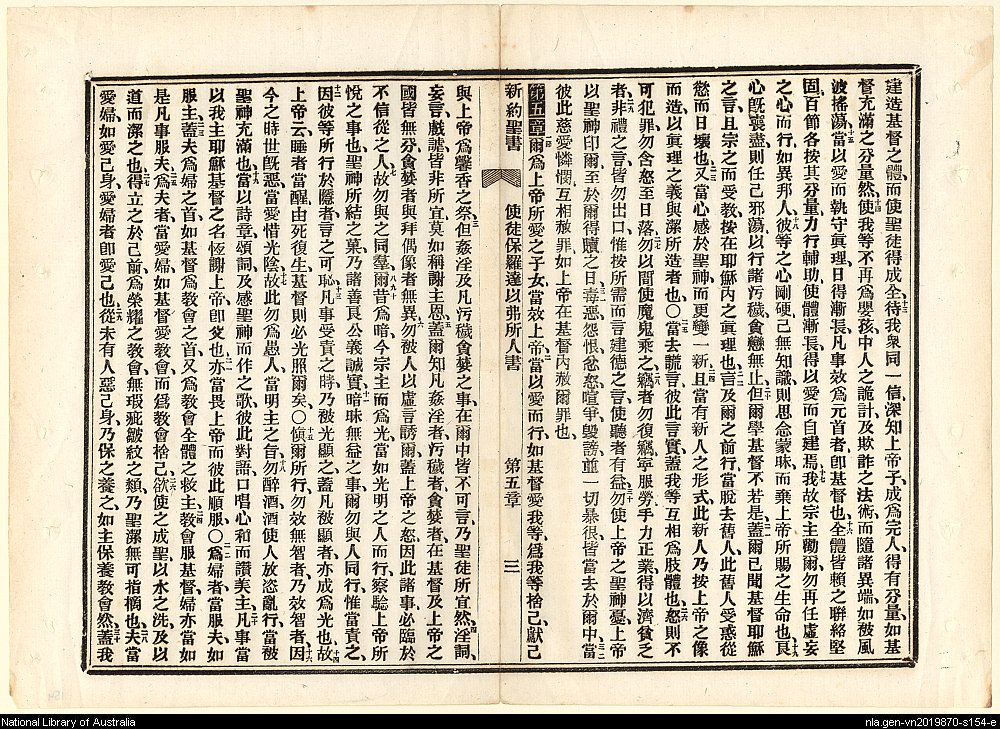 建造基督之體而使聖徒得成全待我衆同一信深知上帝子成爲完人得有分量如基
督充滿之分量然使我等不再爲嬰孩中人之詭計及欺詐之法術而隨諸異端如被風
波搖蕩當以愛而執守眞理日得漸長凡事效爲元首者卽基督也全體皆賴之聯絡堅
固百節各按其分量力行輔助使體漸長得以愛而自建焉我故宗主勸爾勿再任虛妄
之心而行如異邦人彼等之心剛硬己無知識則思念蒙昧而棄上帝所賜之生命也良
心旣喪盡則任己邪蕩以行諸污穢貪戀無止但爾學基督不若是蓋爾已聞基督耶穌
之言且宗之而受敎按在耶穌內之眞理也言及爾之前行當脫去舊人此舊人受惑從
慾而日壞也又當心感於聖神而更變一新且當有新人之形式此新人乃按上帝之像
而造以眞理之義與潔所造者也〇當去謊言彼此言實蓋我等互相爲肢體也怒則不
可犯罪勿含怒至日落勿以間使魔鬼乘之竊者勿復竊寧服勞手力正業得以濟貧乏
者非禮之言皆勿出口惟按所需而言建德之言使聽者有益勿使上帝之聖神憂上帝
以聖神印爾至於爾得贖之日毒惡怨恨忿怒喧爭毀謗並一切暴很皆當去於爾中當
彼此慈愛憐憫互相赦罪如上帝在基督內赦爾罪也
第五章爾爲上帝所愛之子女當效上帝當以愛而行如基督愛我等爲我等捨己獻己
新約聖書 使徒保羅達以弗所人書 第五章 三
與上帝爲馨香之祭但姦淫及凡污穢貪婪之事在爾中皆不可言乃聖徒所宜然淫詞
妄言戲謔皆非所宜莫如稱謝主恩蓋爾知凡姦淫者污穢者貪婪者在基督及上帝之
國皆無分貪婪者與拜偶像者無異勿被人以虛言誘爾蓋上帝之怒因此諸事必臨於
不信從之人故勿與之同羣爾昔爲暗今宗主而爲光當如光明之人而行察驗上帝所
悅之事也聖神所結之菓乃諸善良公義誠實暗昧無益之事爾勿與人同行惟當責之
因彼等所行於隱者言之可恥凡事受責之時乃被光顯之蓋凡被顯者亦成爲光也故
上帝云睡者當醒由死復生基督則必光照爾矣〇愼爾所行勿效無智者乃效智者因
今之時世旣惡當愛惜光陰故此勿爲愚人當明主之旨勿醉酒酒使人放恣亂行當被
聖神充滿也當以詩章頌詞及感聖神而作之歌彼此對語口唱心和而讚美主凡事當
以我主耶穌基督之名恆謝上帝卽父也亦當畏上帝而彼此順服〇爲婦者當服夫如
服主蓋夫爲婦之首如基督爲敎會之首又爲敎會全體之救主敎會服基督婦亦當如
是凡事服夫爲夫者當愛婦如基督愛敎會而爲敎會捨己欲使之成聖以水之洗及以
道而潔之也得立之於己前爲榮耀之敎會無瑕疵皺紋之類乃聖潔無可指摘也夫當
愛婦如愛己身愛婦者卽愛己也從未有人惡己身乃保之養之如主保養敎會然蓋我
National Library of Australia
nla.gen-vn2019870-s154-e